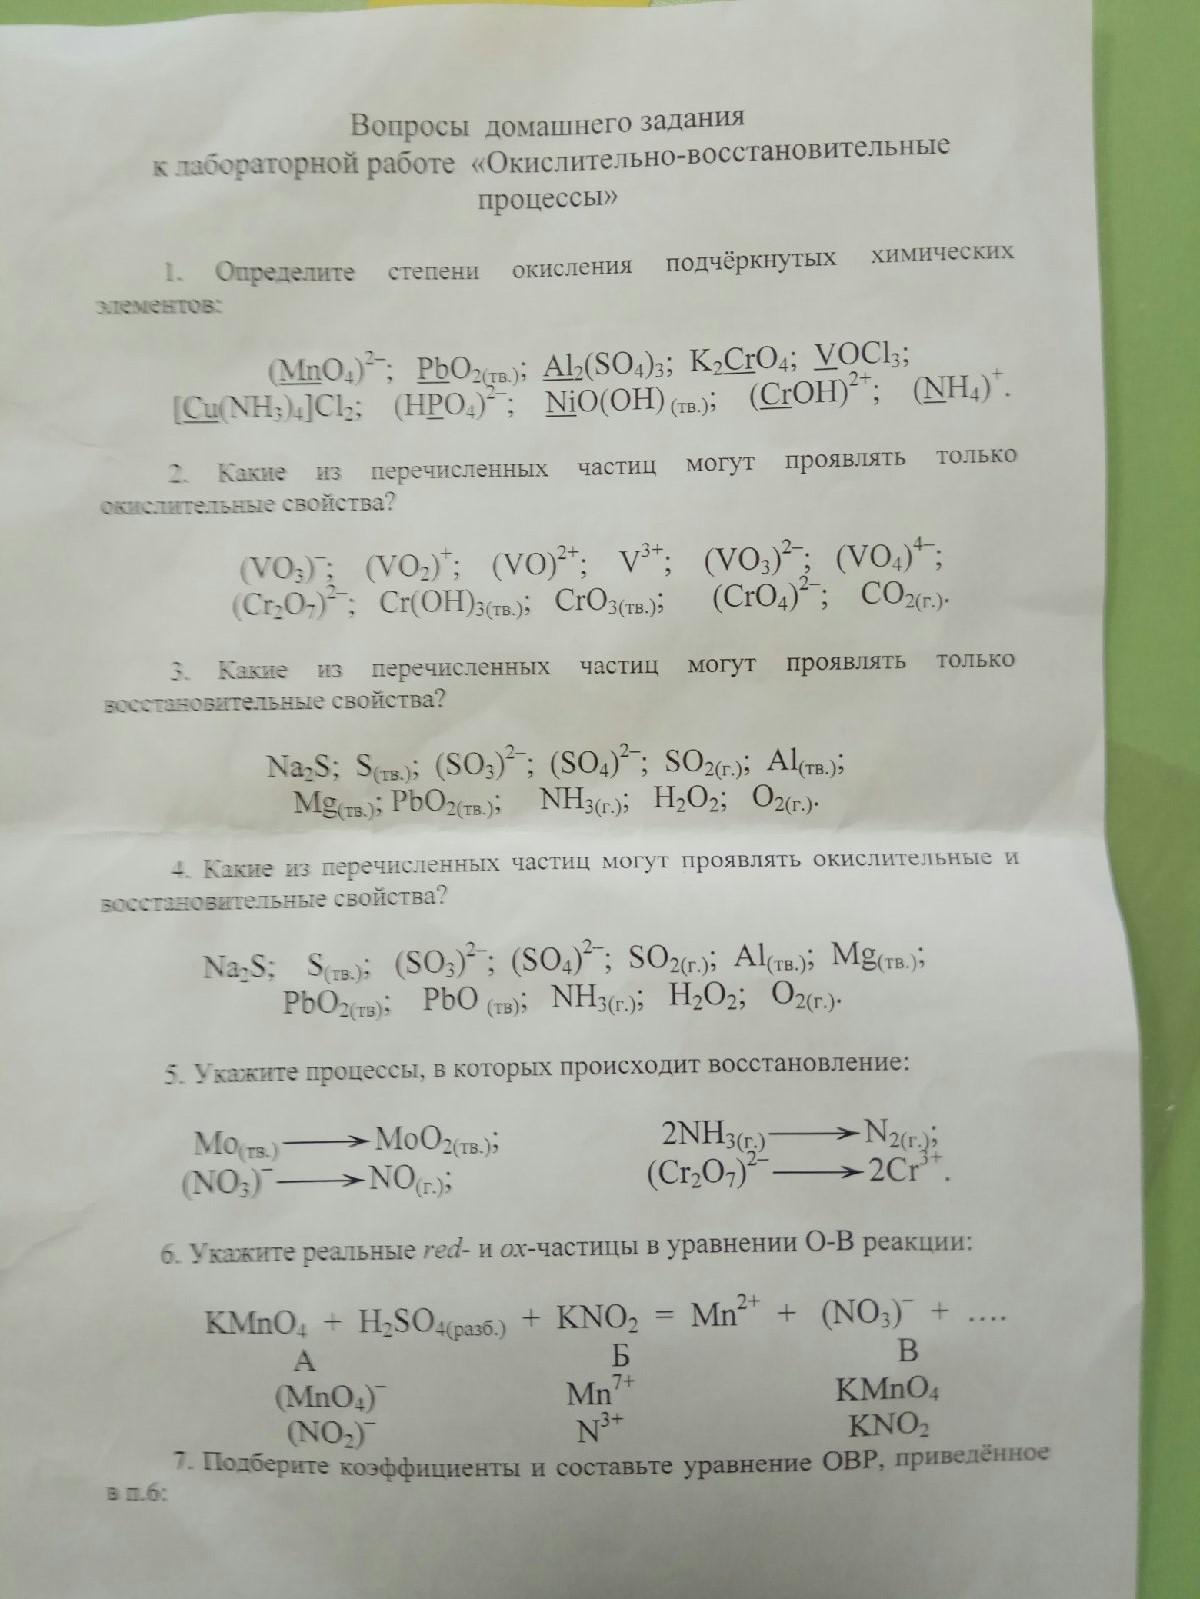 Вопросы домашнего задания
к лабораторной работе «Окислительно-восстановительные
процессы»
1. Определите степени окисления подчёркнутых химических
элементов:
(MnO₄)²⁻; PbO₂(тв.); Al₂(SO₄)₃; K₂CrO₄; VOCl₃;
[Cu(NH₃)₄]Cl₂; (HPO₄)²⁻; NiO(OH) (тв.); (CrOH)²⁺; (NH₄)⁺.
2. Какие из перечисленных частиц могут проявлять только
окислительные свойства?
(VO₃)⁻; (VO₂)⁺; (VO)²⁺; V³⁺; (VO₃)²⁻; (VO₄)⁴⁻;
(Cr₂O₇)²⁻; Cr(OH)₃(тв.); CrO₃(тв.); (CrO₄)²⁻; CO₂(г.).
3. Какие из перечисленных частиц могут проявлять только
восстановительные свойства?
Na₂S; S(тв.); (SO₃)²⁻; (SO₄)²⁻; SO₂(г.); Al(тв.);
Mg(тв.); PbO₂(тв.); NH₃(г.); H₂O₂; O₂(г.).
4. Какие из перечисленных частиц могут проявлять окислительные и
восстановительные свойства?
Na₂S; S(тв.); (SO₃)²⁻; (SO₄)²⁻; SO₂(г.); Al(тв.); Mg(тв.);
PbO₂(тв); PbO (тв); NH₃(г.); H₂O₂; O₂(г.).
5. Укажите процессы, в которых происходит восстановление:
Mo(тв.) → MoO₂(тв.); 2NH₃(г.) → N₂(г.);
(NO₃)⁻ → NO(г.); (Cr₂O₇)²⁻ → 2Cr³⁺.
6. Укажите реальные red- и ox-частицы в уравнении О-В реакции:
KMnO₄ + H₂SO₄(разб.) + KNO₂ = Mn²⁺ + (NO₃)⁻ + ....
А Б В
(MnO₄)⁻ Mn⁷⁺ KMnO₄
(NO₂)⁻ N³⁺ KNO₂
7. Подберите коэффициенты и составьте уравнение ОВР, приведённое
в п.6: